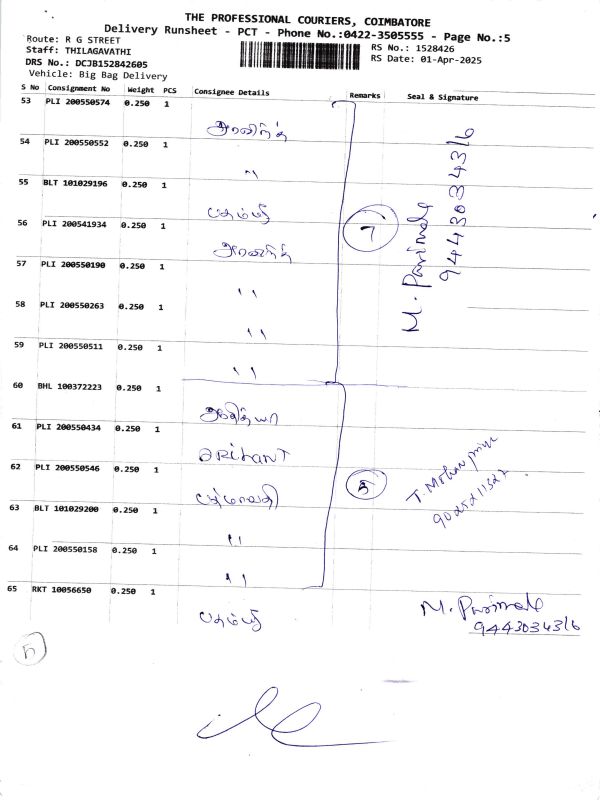 THE PROFESSIONAL COURIERS, COIMBATORE
Delivery Runsheet - PCT - Phone No.:0422-3505555 - Page No.:5
Route: R G STREET
Staff: THILAGAVATHI
RS No.: 1528426
DRS No.: DCJB152842605
RS Date: 01-Apr-2025
Vehicle: Big Bag Delivery
S No Consignment No Weight PCS Consignee Details Remarks Seal & Signature
53 PLI 200550574 0.250 1
அரவிந்த்
54 PLI 200550552 0.250 1
"
55 BLT 101029196 0.250 1
56 PLI 200541934 0.250 1
அரவிந்த்
7
M. Parimala
9443034316
57 PLI 200550190 0.250 1
"
58 PLI 200550263 0.250 1
"
59 PLI 200550511 0.250 1
"
60 BHL 100372223 0.250 1
61 PLI 200550434 0.250 1
ARihANT
62 PLI 200550546 0.250 1
பத்மாவதி
5
T. Mohan priya
63 BLT 101029200 0.250 1
"
64 PLI 200550158 0.250 1
"
65 RKT 10056650 0.250 1
M. Parimala
9443034316